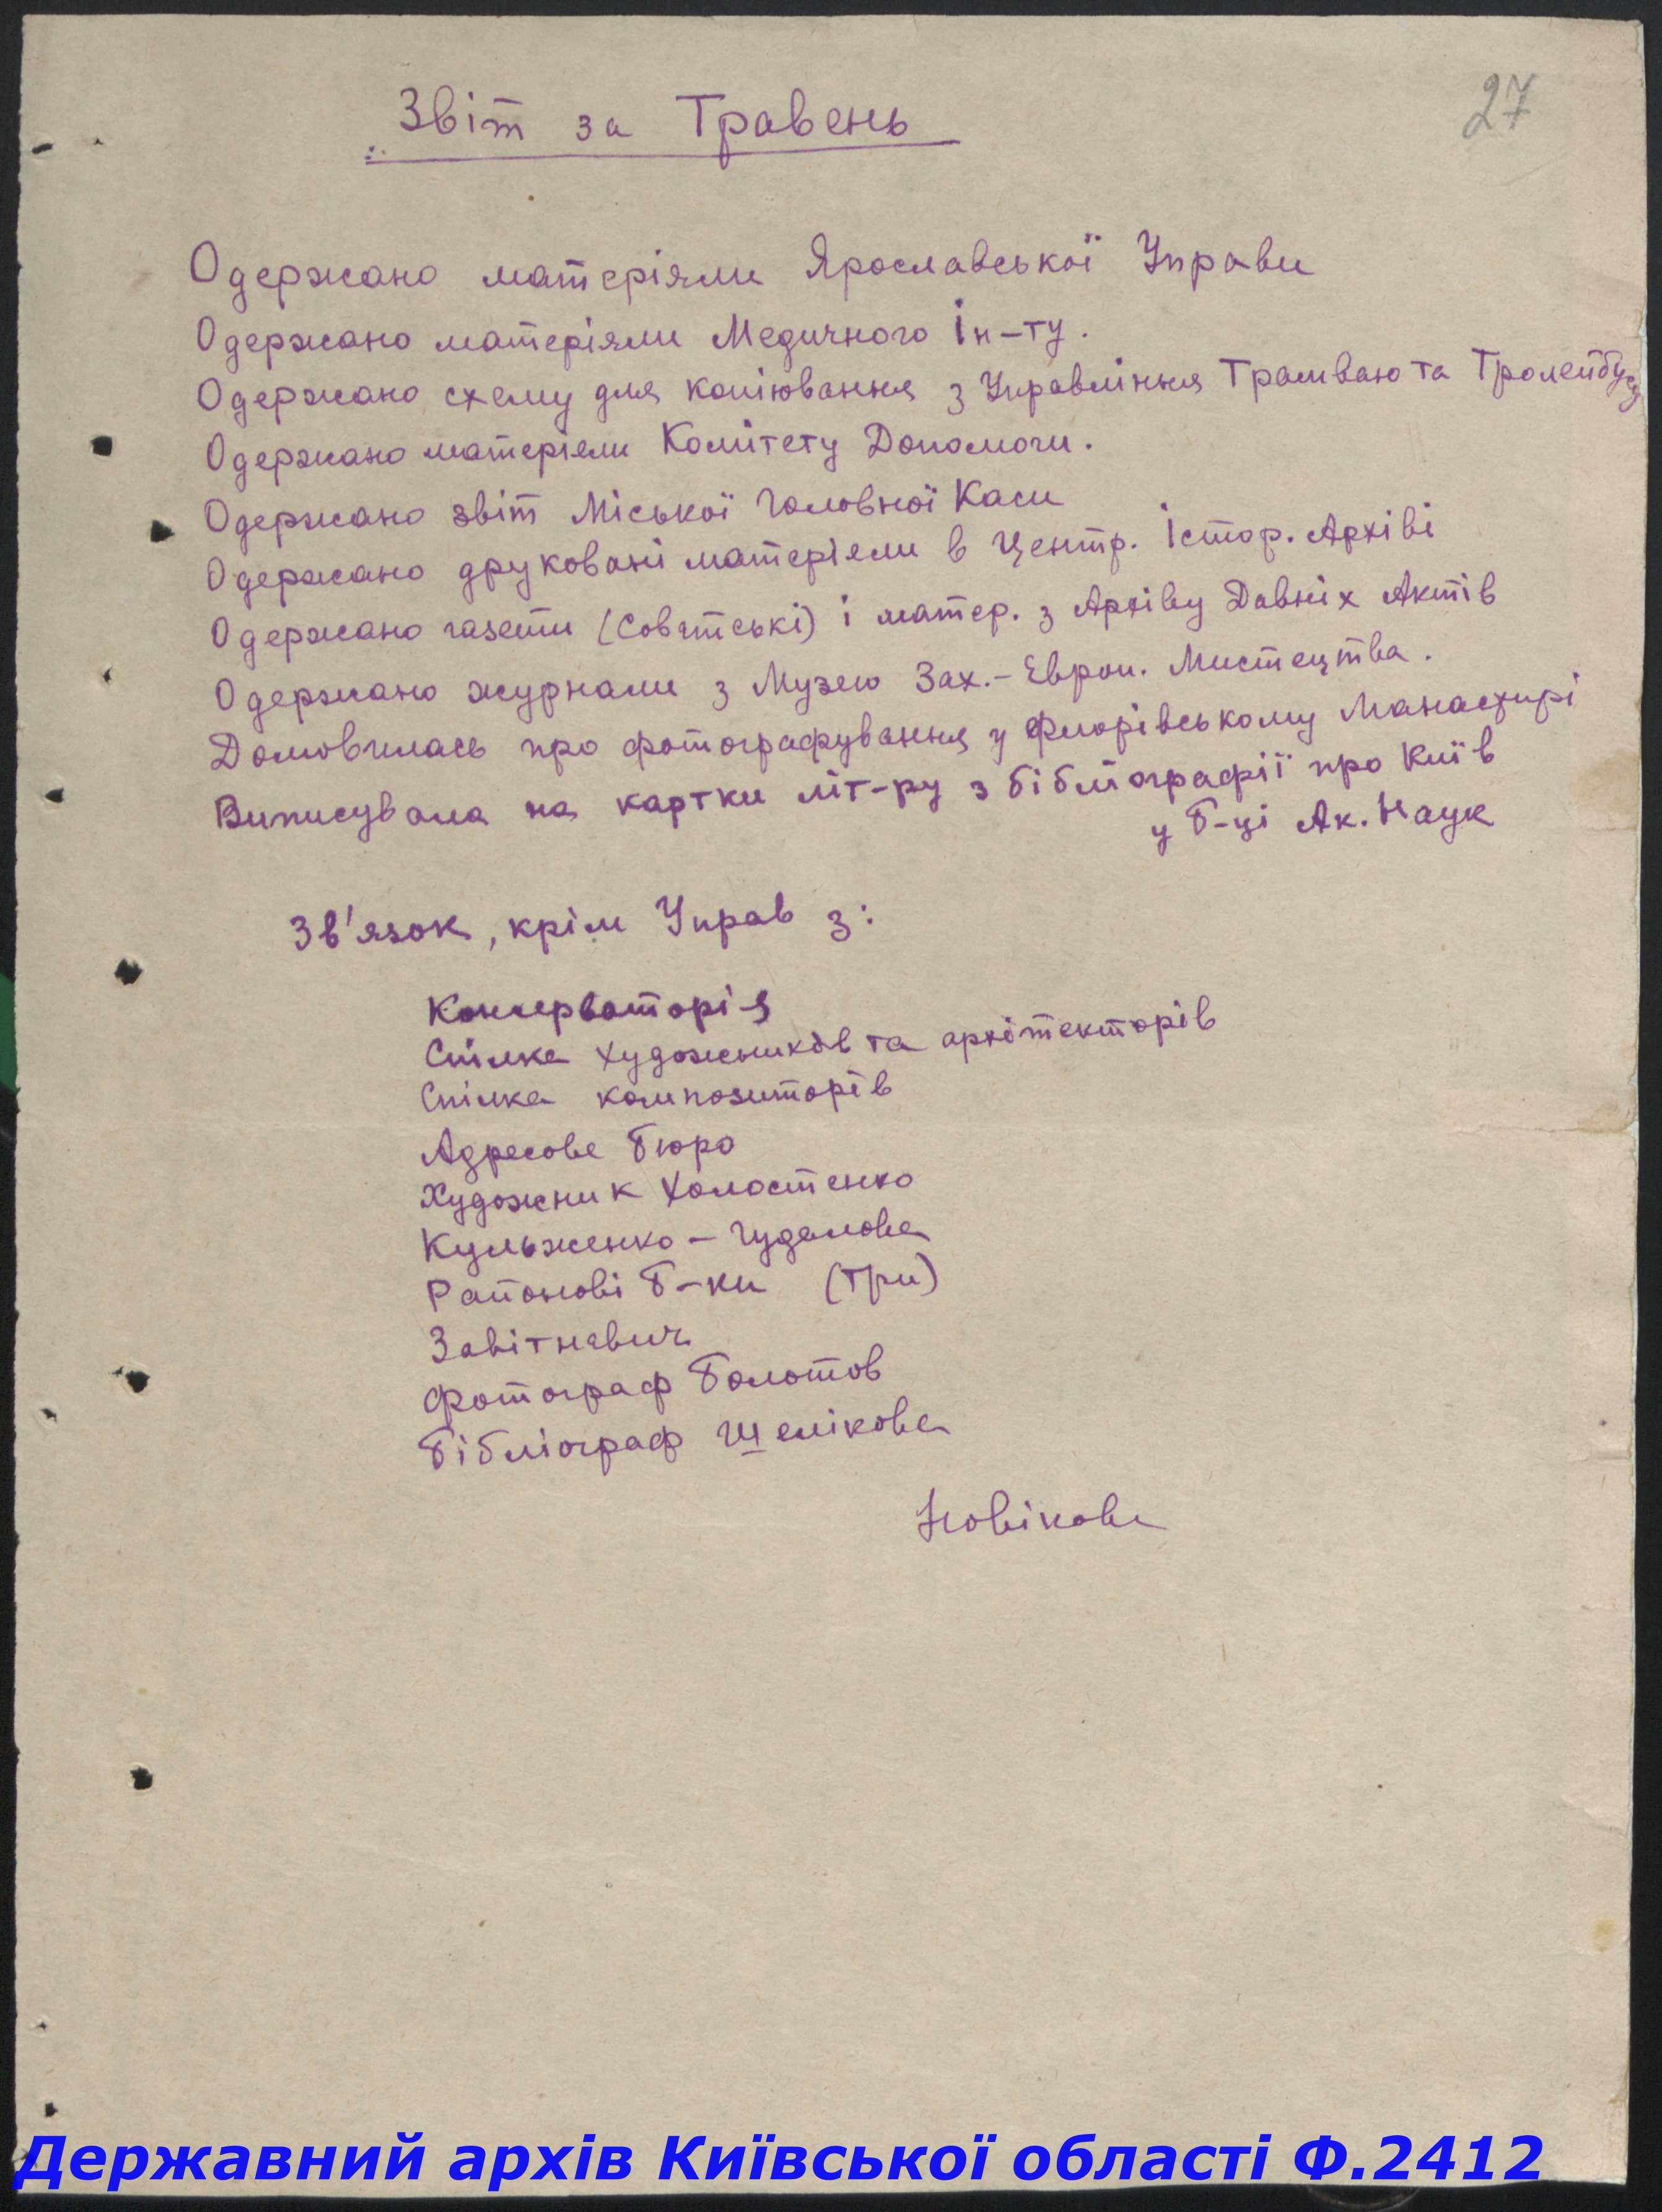 27
Звіт за Травень
Одержано матеріяли Ярославської Управи
Одержано матеріяли Медичного Ін-ту.
Одержано схему для копіювання з Управління Трамваю та Тролейбусу
Одержано матеріяли Комітету Допомоги.
Одержано звіт Міської Головної Каси
Одержано друковані матеріяли в Центр. Істор. Архіві
Одержано газети (Совєтські) і матер. з Архіву Давніх Актів
Одержано журнали з Музею Зах.-Европ. Мистецтва.
Домовилась про фотографування у Флорівському Манастирі
Виписувала на картки літ-ру з бібліографії про Київ
у Б-ці Ак. Наук
Зв'язок, крім Управ з:
Консерваторія
Спілка художників та архітекторів
Спілка композиторів
Адресове Бюро
Художник Холостенко
Кульженко - Гудалова
Районові Б-ки (три)
Завітневич
Фотограф Болотов
Бібліограф Шелікова
Новікова
Державний архів Київської області Ф.2412